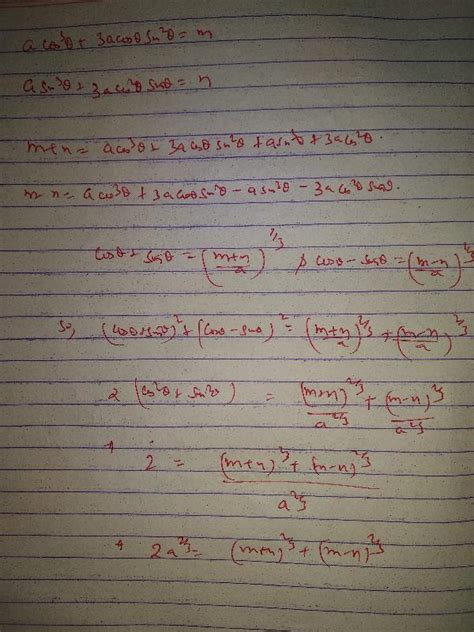 a cos³θ + 3a cosθ sin²θ = m
a sin³θ + 3a cos²θ sinθ = n
m+n = a cos³θ + 3a cosθ sin²θ + a sin³θ + 3a cos²θ .
m-n = a cos³θ + 3a cosθ sin²θ - a sin³θ - 3a cos²θ sinθ.
cosθ + sinθ = (m+n/a)^1/3 & cosθ - sinθ = (m-n/a)^1/3
So, (cosθ+sinθ)² + (cosθ - sinθ)² = (m+n/a)^2/3 + (m-n/a)^2/3
2 (cos²θ + sin²θ) = (m+n)^2/3/a^2/3 + (m-n)^2/3/a^2/3
2 = (m+n)^2/3 + (m-n)^2/3/a^2/3
2a^2/3 = (m+n)^2/3 + (m-n)^2/3